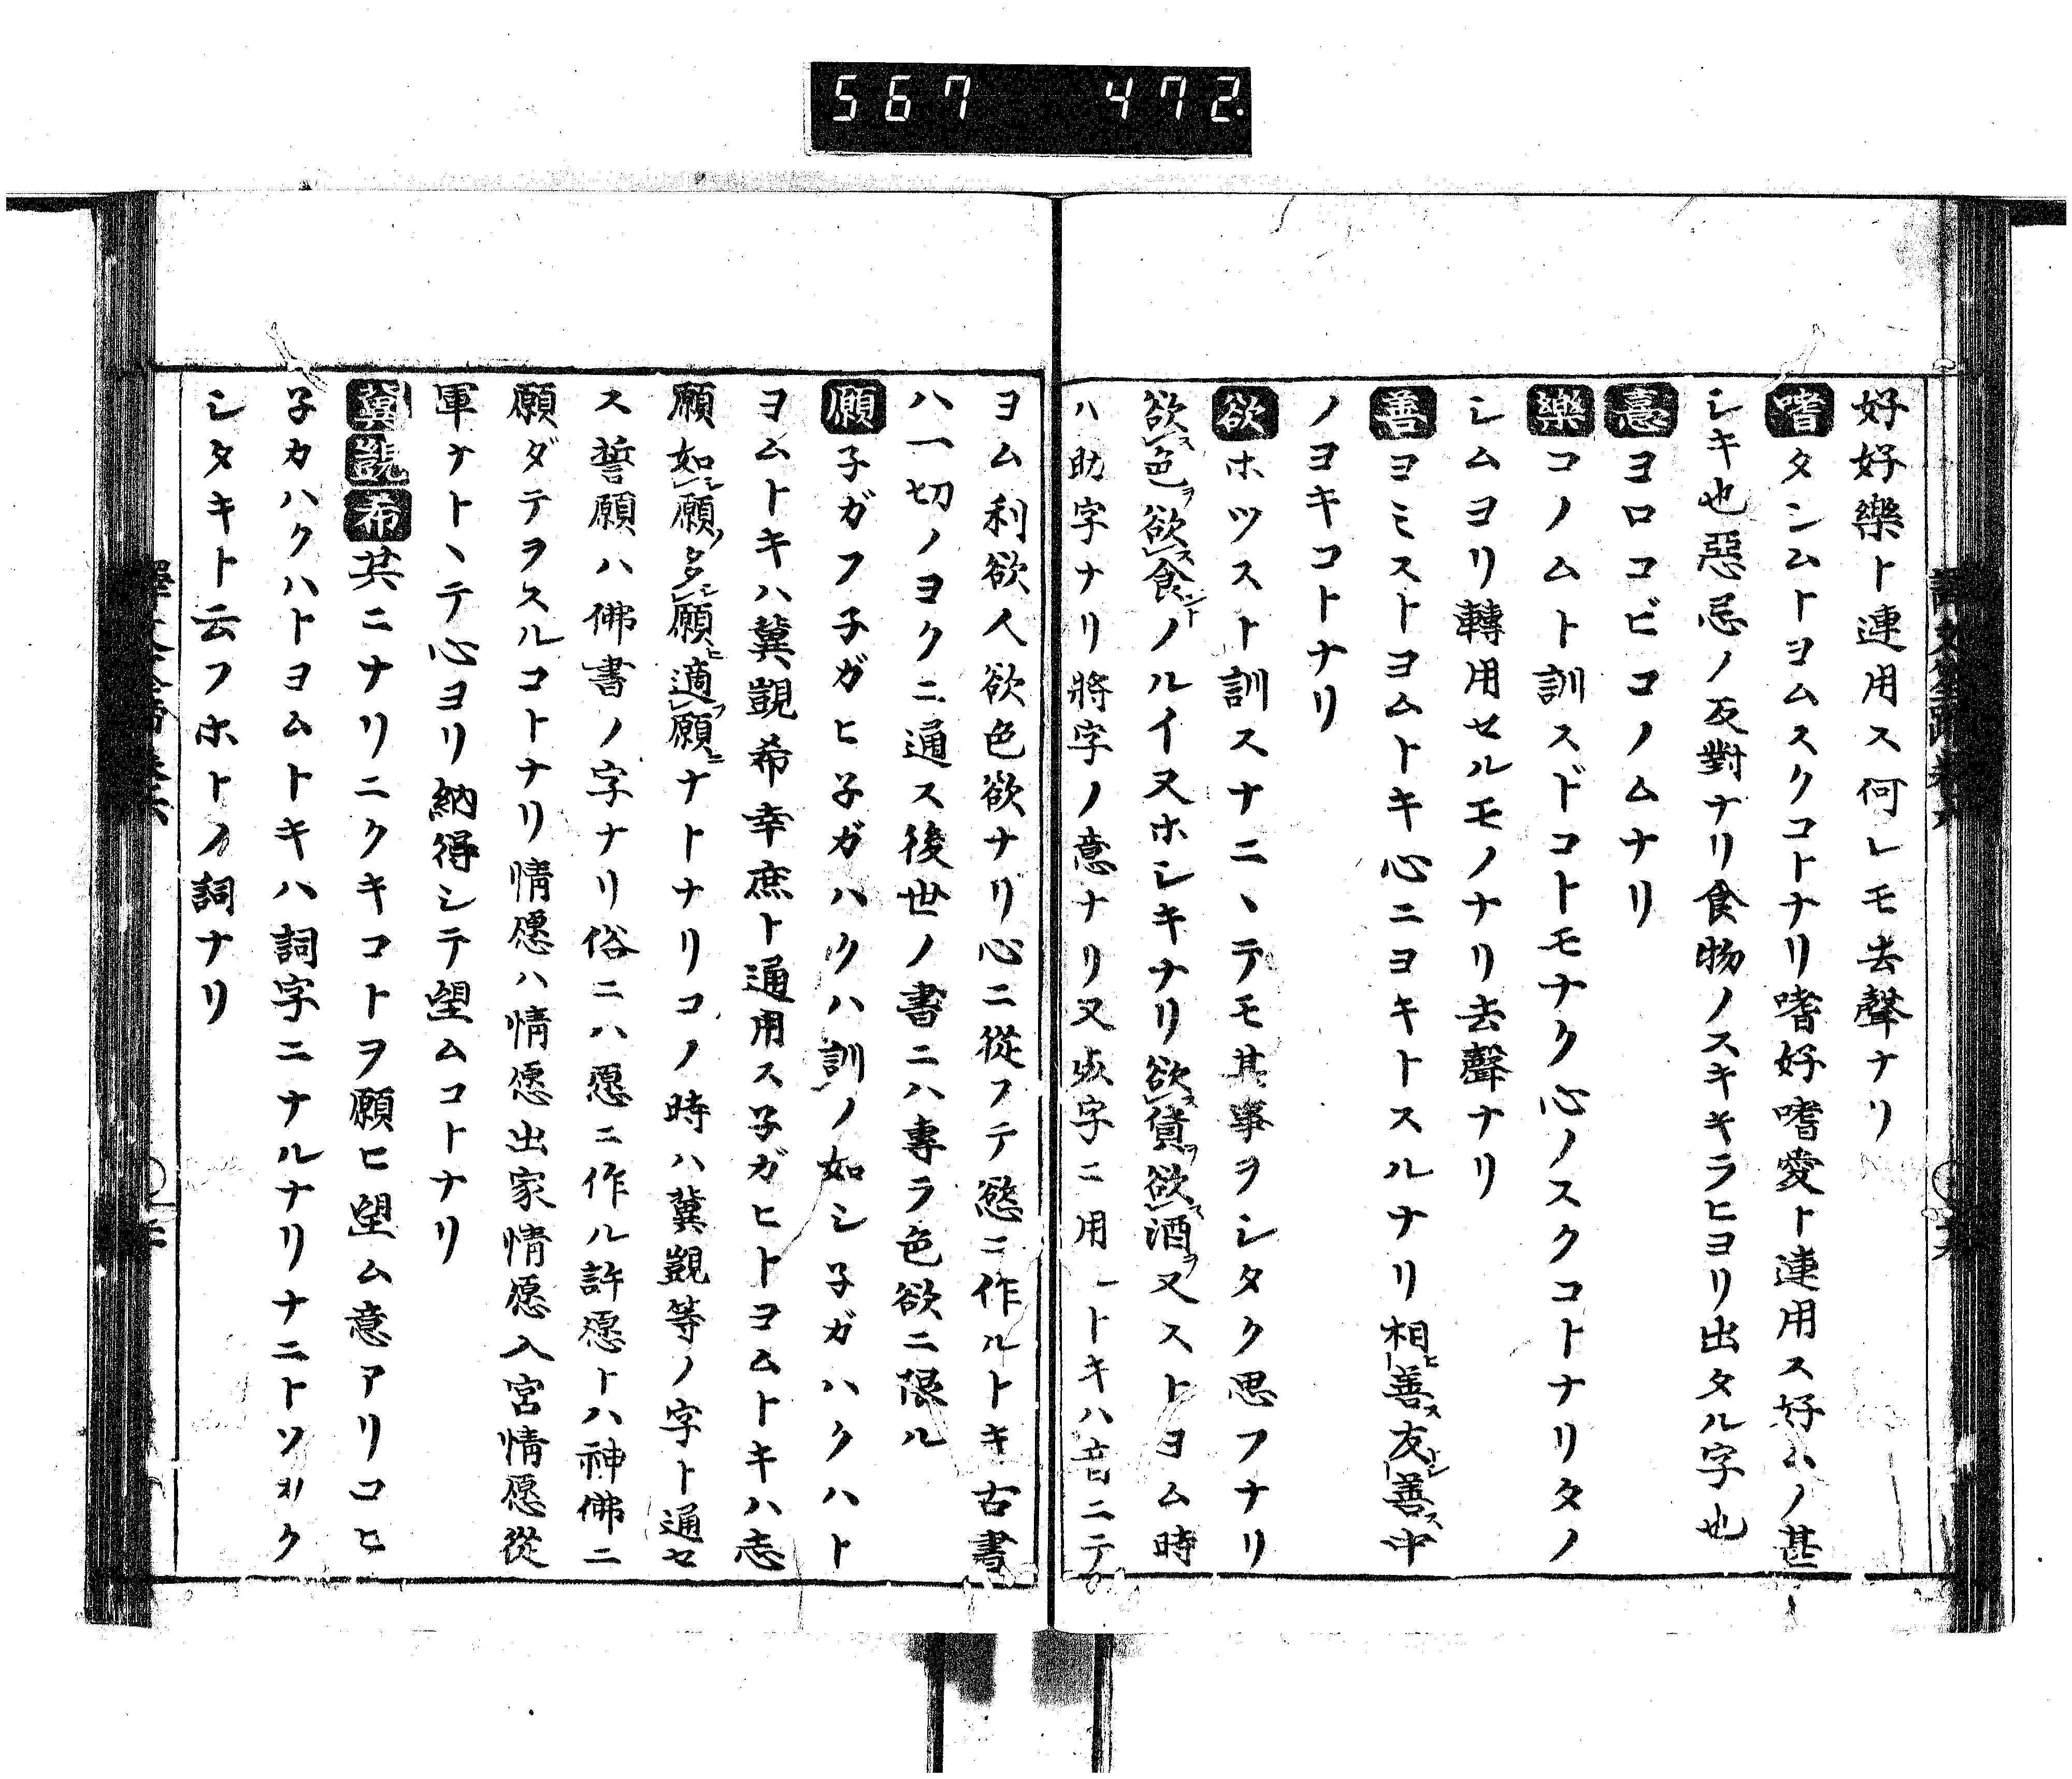 567 472
好好樂ト連用ス何レモ去聲ナリ
嗜タシムトヨムスクコトナリ嗜好嗜愛ト連用ス好ムノ甚
シキ也惡忌ノ反對ナリ食物ノスキキラヒヨリ出タル字也
憙ヨロコビコノムナリ
樂コノムト訓スドコトモナク心ノスクコトナリタノ
シムヨリ轉用セルモノナリ去聲ナリ
善ヨミストヨムトキ心ニヨキトスルナリ相ヒ善ス友トシ善ス中
ノヨキコトナリ
欲ホツスト訓スナニヽテモ其事ヲシタク思フナリ
欲スレ色ヲ欲スレ食ントノルイ又ホシキナリ欲スレ貨ヲ欲スレ酒ヲ又ストヨム時
ハ助字ナリ將字ノ意ナリ又虛字ニ用ルトキハ音ニテ
ヨム利欲人欲色欲ナリ心ニ從フテ慾ニ作ルトキ古書
ハ一切ノヨクニ通ス後世ノ書ニハ專ラ色欲ニ限ル
願子ガフ子ガヒ子ガハクハ訓ノ如シ子ガハクハト
ヨムトキハ冀覬希幸庶ト通用ス子ガヒトヨムトキハ志
願如シレ願ノ多シレ願ヒ適フレ願ニナトナリコノ時ハ冀覬等ノ字ト通セ
ス誓願ハ佛書ノ字ナリ俗ニハ愿ニ作ル許愿トハ神佛ニ
願ダテヲスルコトナリ情愿ハ情愿出家情愿入宮情愿從
軍ナトヽテ心ヨリ納得シテ望ムコトナリ
冀覬希共ニナリニクキコトヲ願ヒ望ム意アリコヒ
子カハクハトヨムトキハ詞字ニナルナリナニトソカク
シタキト云フホトノ詞ナリ